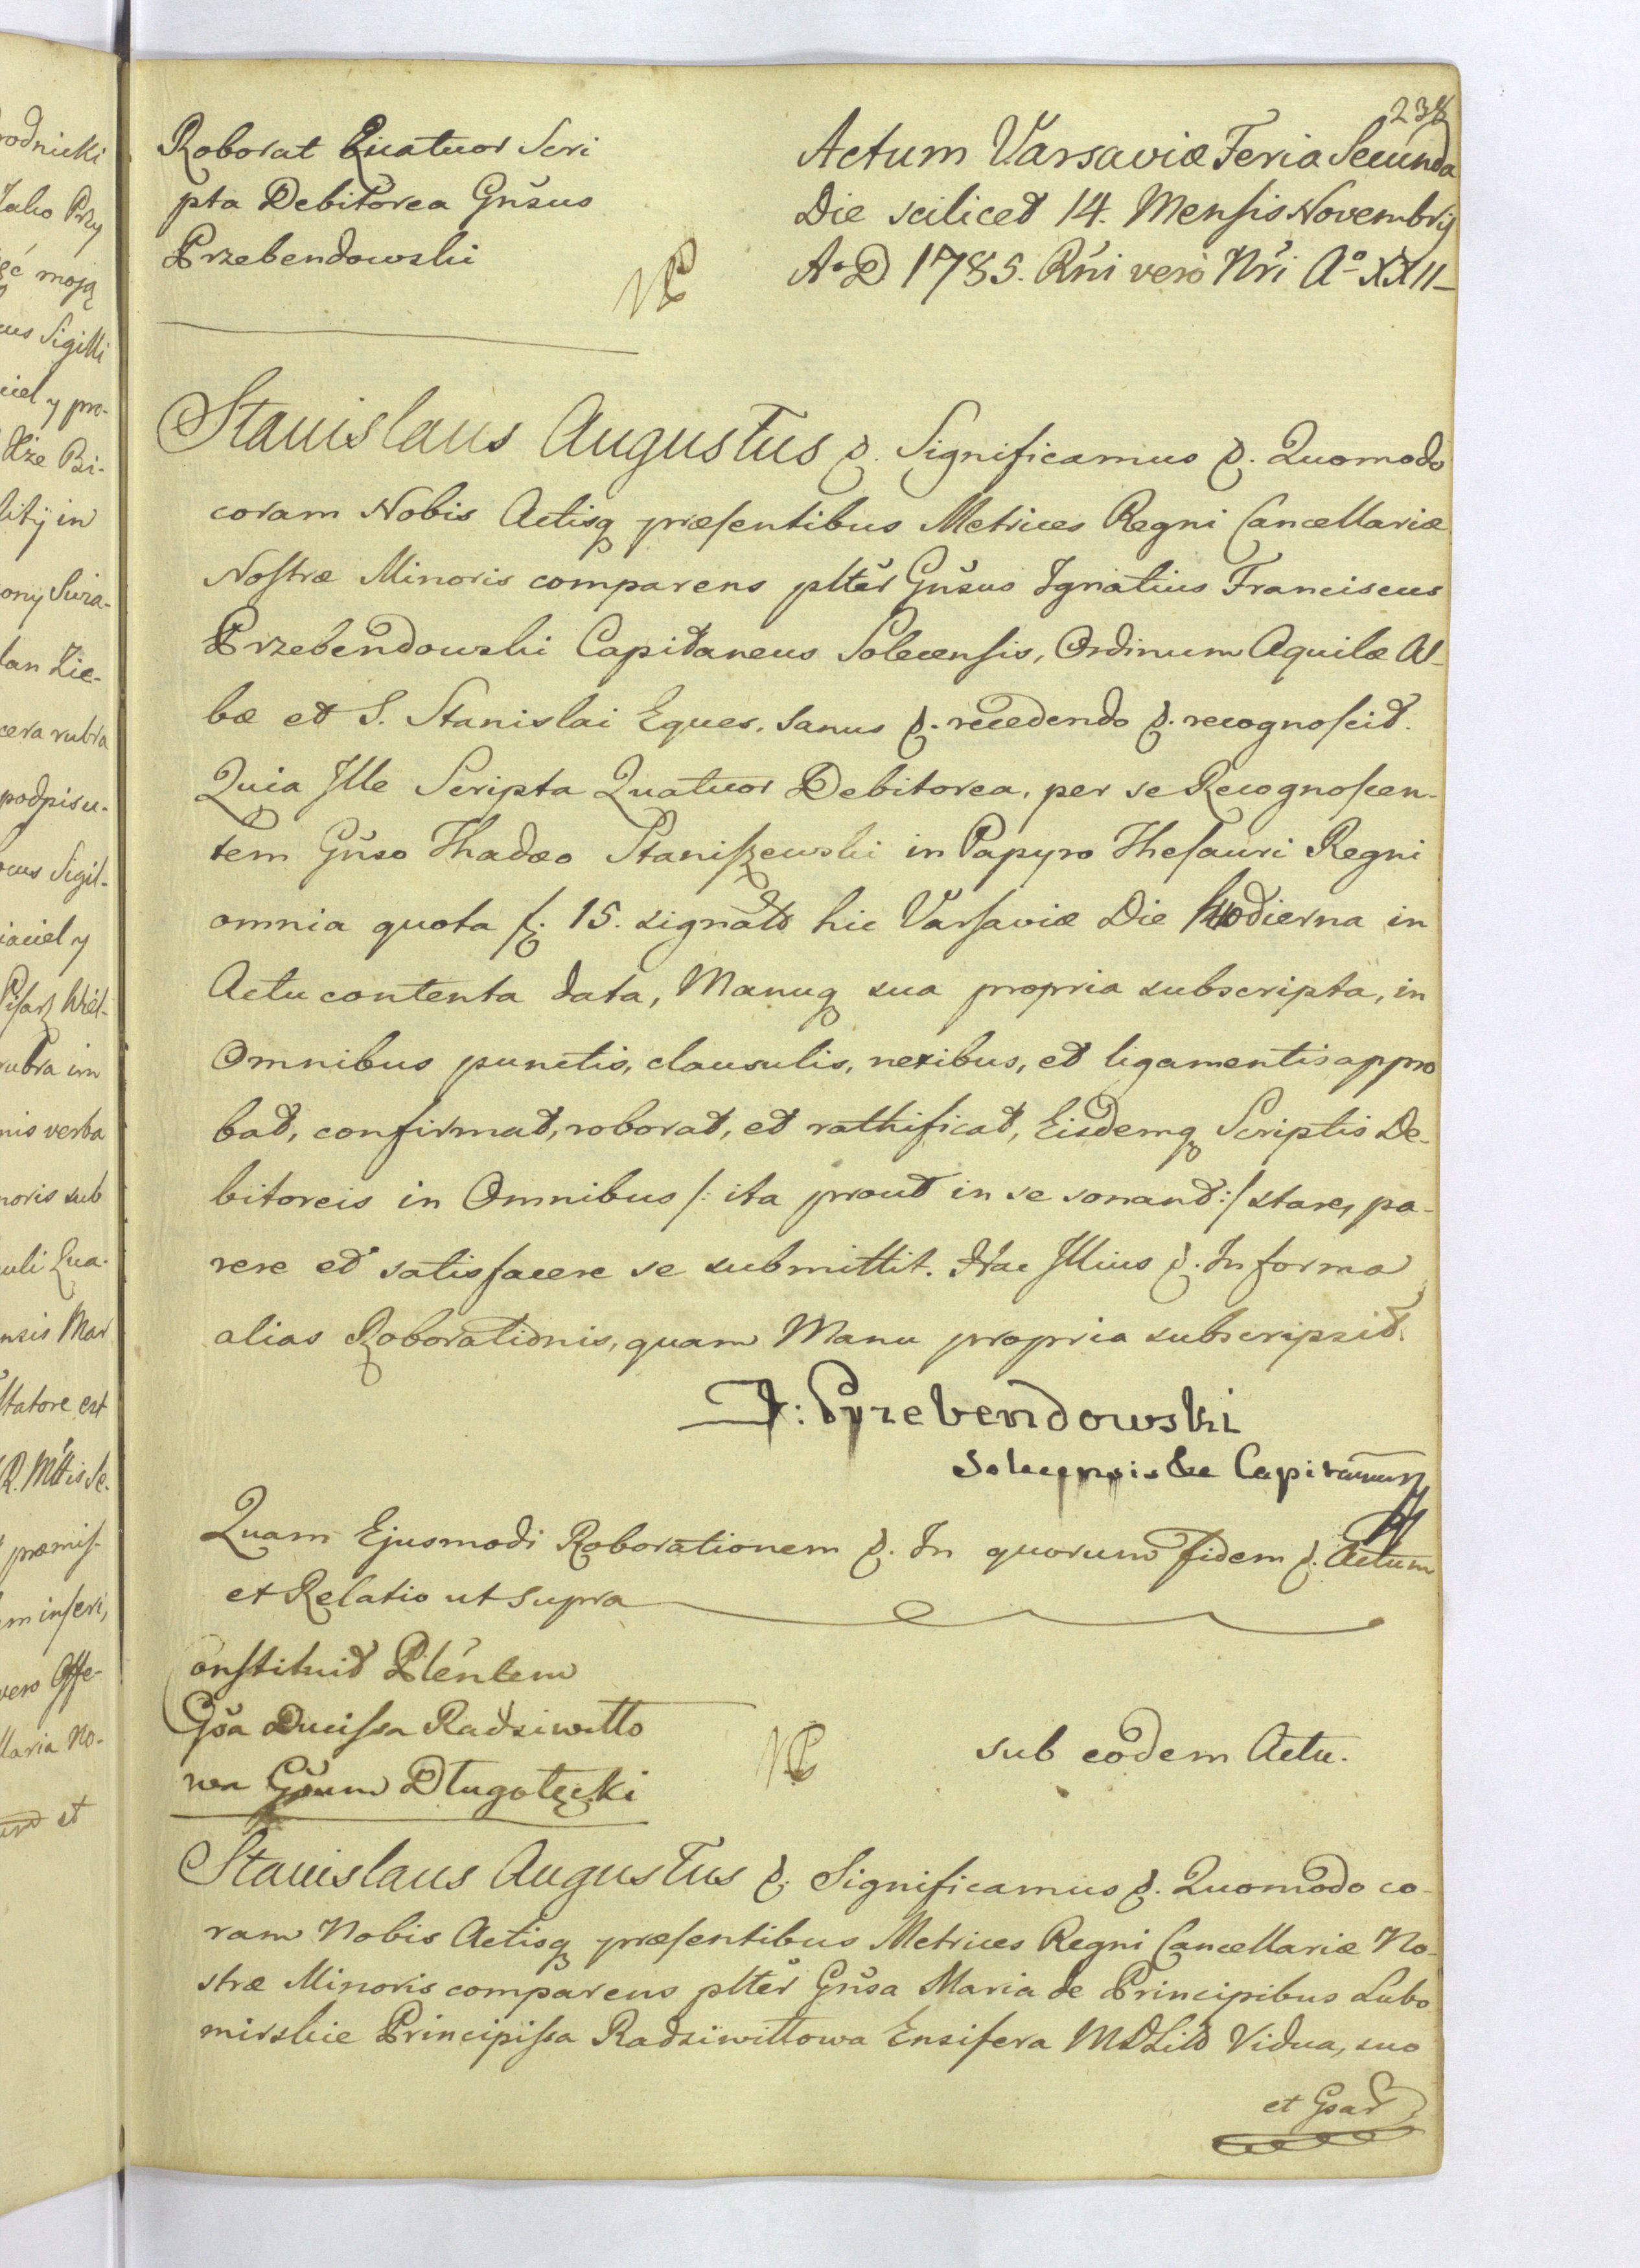 238
Roborat Quatuor Scri
pta Debitorea Gnsus
Przebendowski
Actum Varsaviæ Feria Secunda
Die scilicet 14. Mensis Novembris
Ao D 1785. Rni vero Nri Ao XXII
Stanislaus Augustus &. Significamus &. Quomodo
coram Nobis Actisq præsentibus Metrices Regni Cancellariæ
Nostræ Minoris comparens plter Gnsus Ignatius Franciscus
Przebendowski Capitaneus Solecensis, Ordinum Aquilæ Al-
bæ et S. Stanislai Eques, sanus &. recedendo &. recognoscit.
Quia Ille Scripta Quatuor Debitorea, per se Recognoscen-
tem Gnso Thadæo Staniszewski in Papyro Thesauri Regni
omnia quota f. 15. signato hic Varsaviæ Die Hodierna in
Actu contenta data, Manuq sua propria subscripta, in
Omnibus punctis, clausulis, nexibus, et ligamentis appro
bat, confirmat, roborat, et rathificat, Eisdemq Scriptis De-
bitoreis in Omnibus /: ita prout in se sonant :/ stare, pa-
rere et satisfacere se submittit. Hac Illius &. In forma
alias Roborationis, quam Manu propria subscripsit.
I: Przebendowski
Solecensis &c Capitaneus
Quam Ejusmodi Roborationem &. In quorum fidem &. Actum
et Relatio ut supra
Constituit Plentem
Gsa Ducissa Radziwiłło
wa Gsum Długołęcki
sub eodem Actu.
Stanislaus Augustus &. Significamus &. Quomodo co-
ram Nobis Actisq præsentibus Metrices Regni Cancellariæ No-
stræ Minoris comparens plter Gnsa Maria de Principibus Lubo
mirskie Principissa Radziwiłłowa Ensifera MDLit Vidua, suo
et Gsar